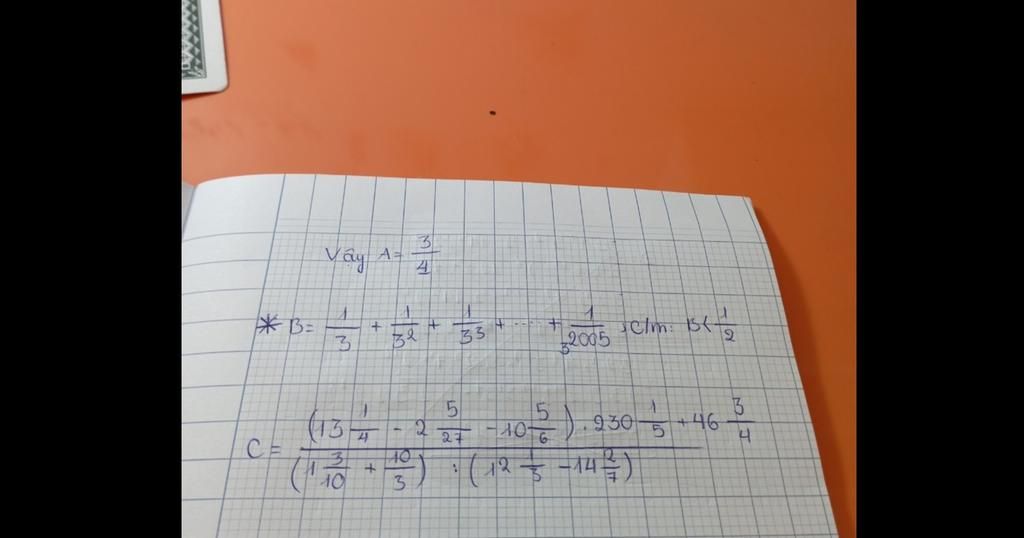 Vậy A = 3/4
* B = 1/3 + 1/3² + 1/3³ + ..... + 1/3²⁰⁰⁵ ; C/m: B < 1/2
C = ((13 1/4 - 2 5/27 - 10 5/6) . 230 1/5 + 46 3/4) / ((1 3/10 + 10/3) : (12 1/3 - 14 2/7))